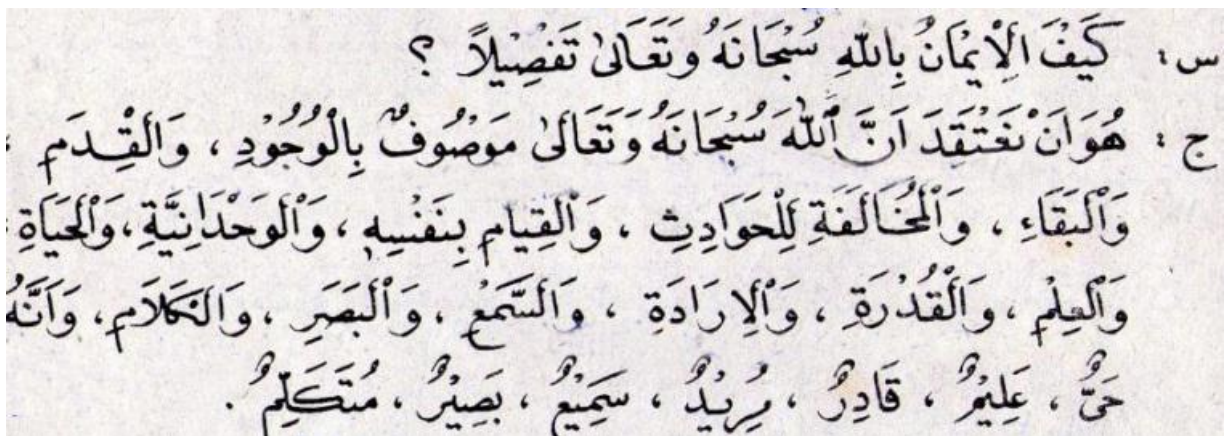 س: كَيْفَ الْاِيْمَانُ بِاللّٰهِ سُبْحَانَهُ وَتَعَالٰى تَفْصِيْلًا ؟
ج: هُوَ اَنْ نَعْتَقِدَ اَنَّ اللّٰهَ سُبْحَانَهُ وَتَعَالٰى مَوْصُوْفٌ بِالْوُجُوْدِ ، وَالْقِدَمِ ،
وَالْبَقَاءِ ، وَالْمُخَالَفَةِ لِلْحَوَادِثِ ، وَالْقِيَامِ بِنَفْسِهِ ، وَالْوَحْدَانِيَّةِ ، وَالْحَيَاةِ ،
وَالْعِلْمِ ، وَالْقُدْرَةِ ، وَالْاِرَادَةِ ، وَالسَّمْعِ ، وَالْبَصَرِ ، وَالْكَلَامِ ، وَاَنَّهُ
حَيٌّ ، عَلِيْمٌ ، قَادِرٌ ، مُرِيْدٌ ، سَمِيْعٌ ، بَصِيْرٌ ، مُتَكَلِّمٌ .